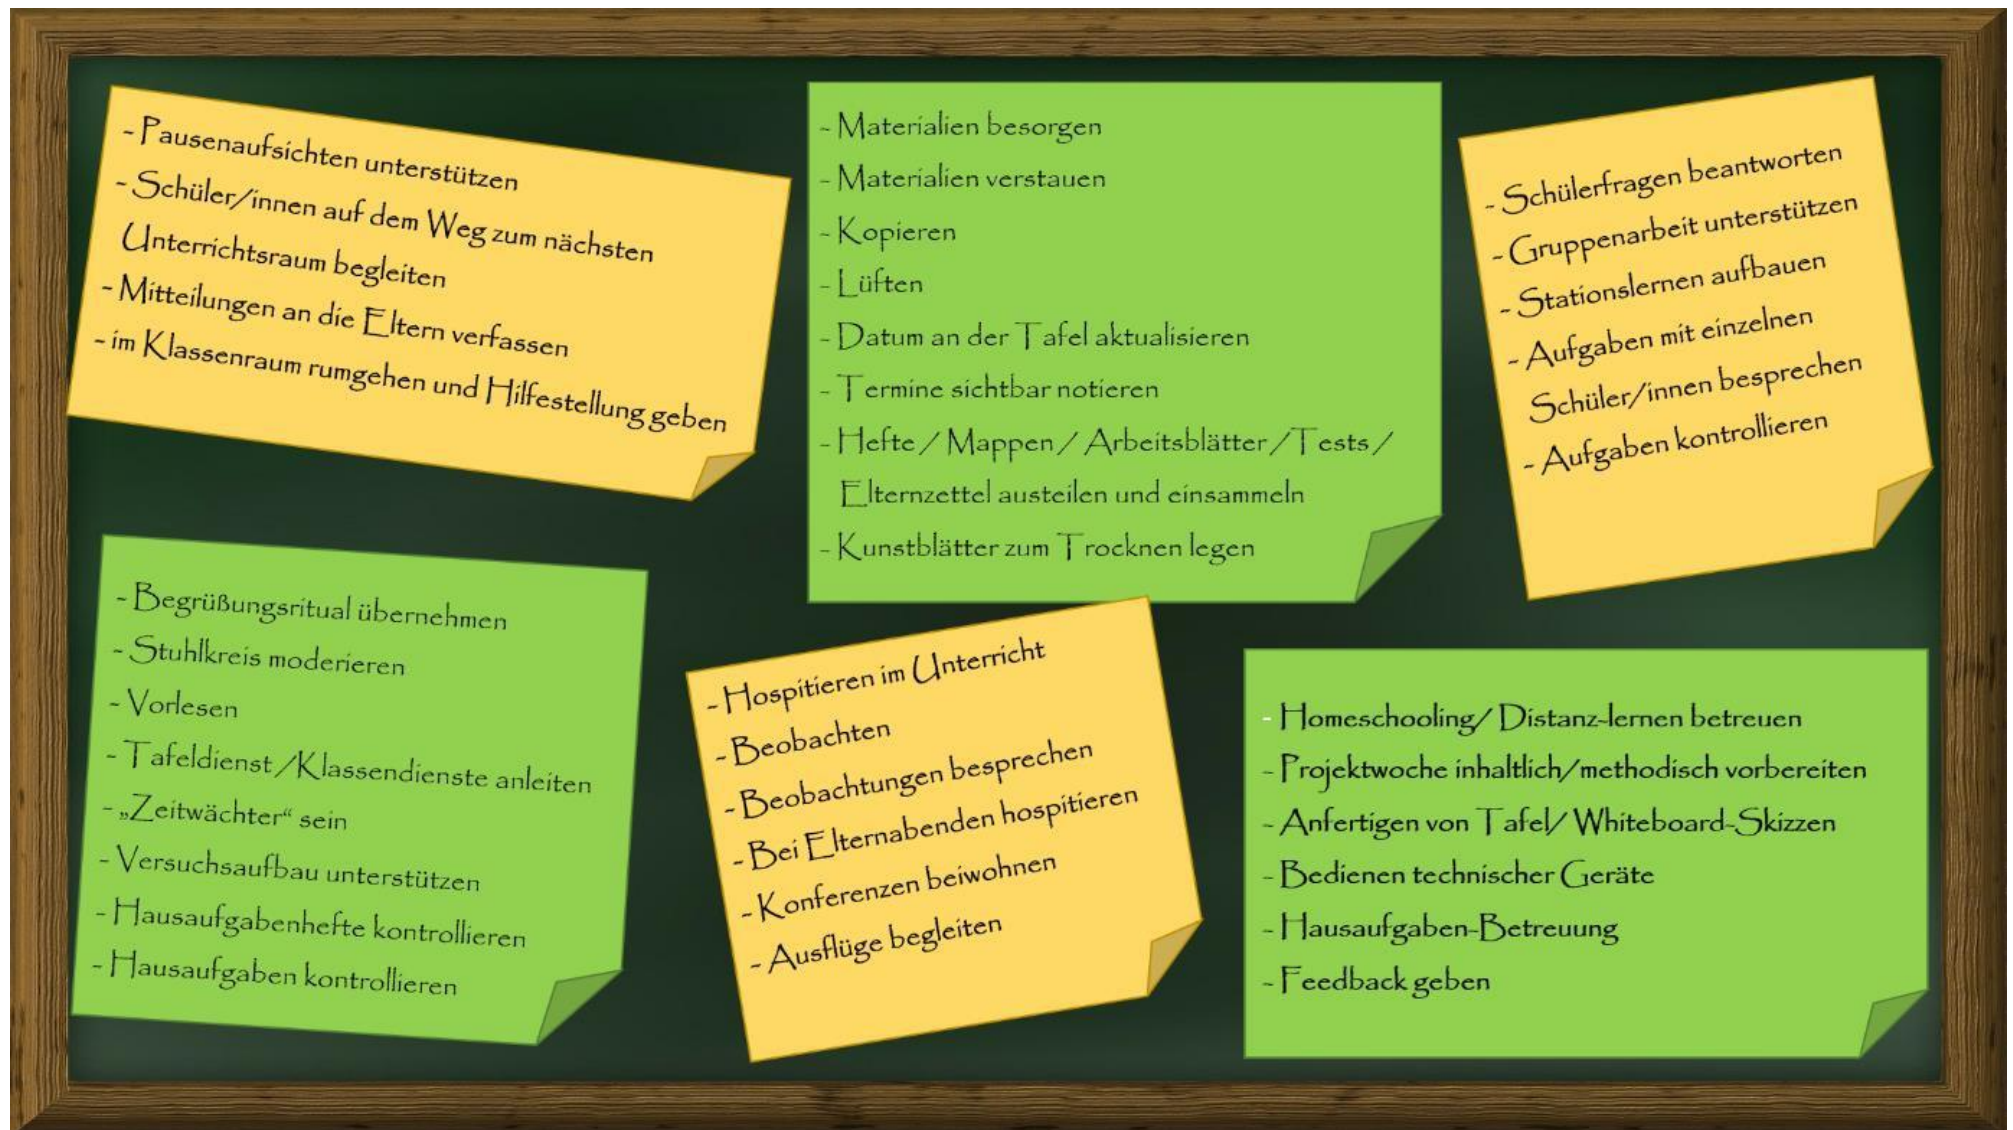 - Pausenaufsichten unterstützen
- Schüler/innen auf dem Weg zum nächsten
Unterrichtsraum begleiten
- Mitteilungen an die Eltern verfassen
- im Klassenraum rumgehen und Hilfestellung geben
- Materialien besorgen
- Materialien verstauen
- Kopieren
- Lüften
- Datum an der Tafel aktualisieren
- Termine sichtbar notieren
- Hefte / Mappen / Arbeitsblätter /Tests /
Elternzettel austeilen und einsammeln
- Kunstblätter zum Trocknen legen
- Schülerfragen beantworten
- Gruppenarbeit unterstützen
- Stationslernen aufbauen
- Aufgaben mit einzelnen
Schüler/innen besprechen
- Aufgaben kontrollieren
- Begrüßungsritual übernehmen
- Stuhlkreis moderieren
- Vorlesen
- Tafeldienst /Klassendienste anleiten
- „Zeitwächter“ sein
- Versuchsaufbau unterstützen
- Hausaufgabenhefte kontrollieren
- Hausaufgaben kontrollieren
- Hospitieren im Unterricht
- Beobachten
- Beobachtungen besprechen
- Bei Elternabenden hospitieren
- Konferenzen beiwohnen
- Ausflüge begleiten
- Homeschooling/ Distanz-lernen betreuen
- Projektwoche inhaltlich/methodisch vorbereiten
- Anfertigen von Tafel/ Whiteboard-Skizzen
- Bedienen technischer Geräte
- Hausaufgaben-Betreuung
- Feedback geben